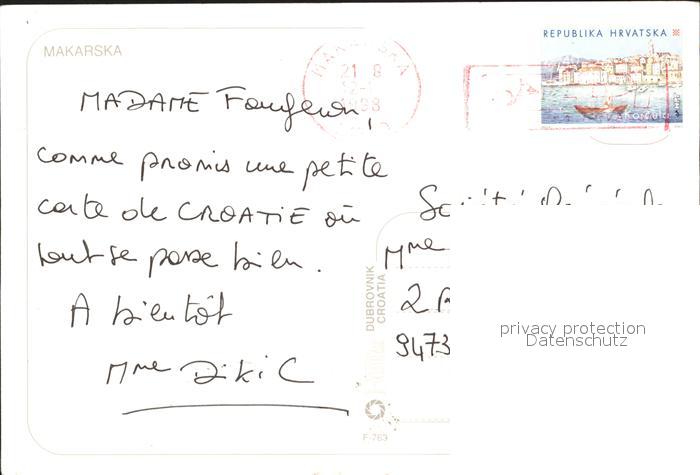 MAKARSKA
REPUBLIKA HRVATSKA
21 8
MADAME Fougeron,
comme promis une petite
carte de CROATIE où
tout se passe bien.
A bientôt
Mme Diki C
Mme
2
9473
DUBROVNIK
CROATIA
F-763
privacy protection
Datenschutz